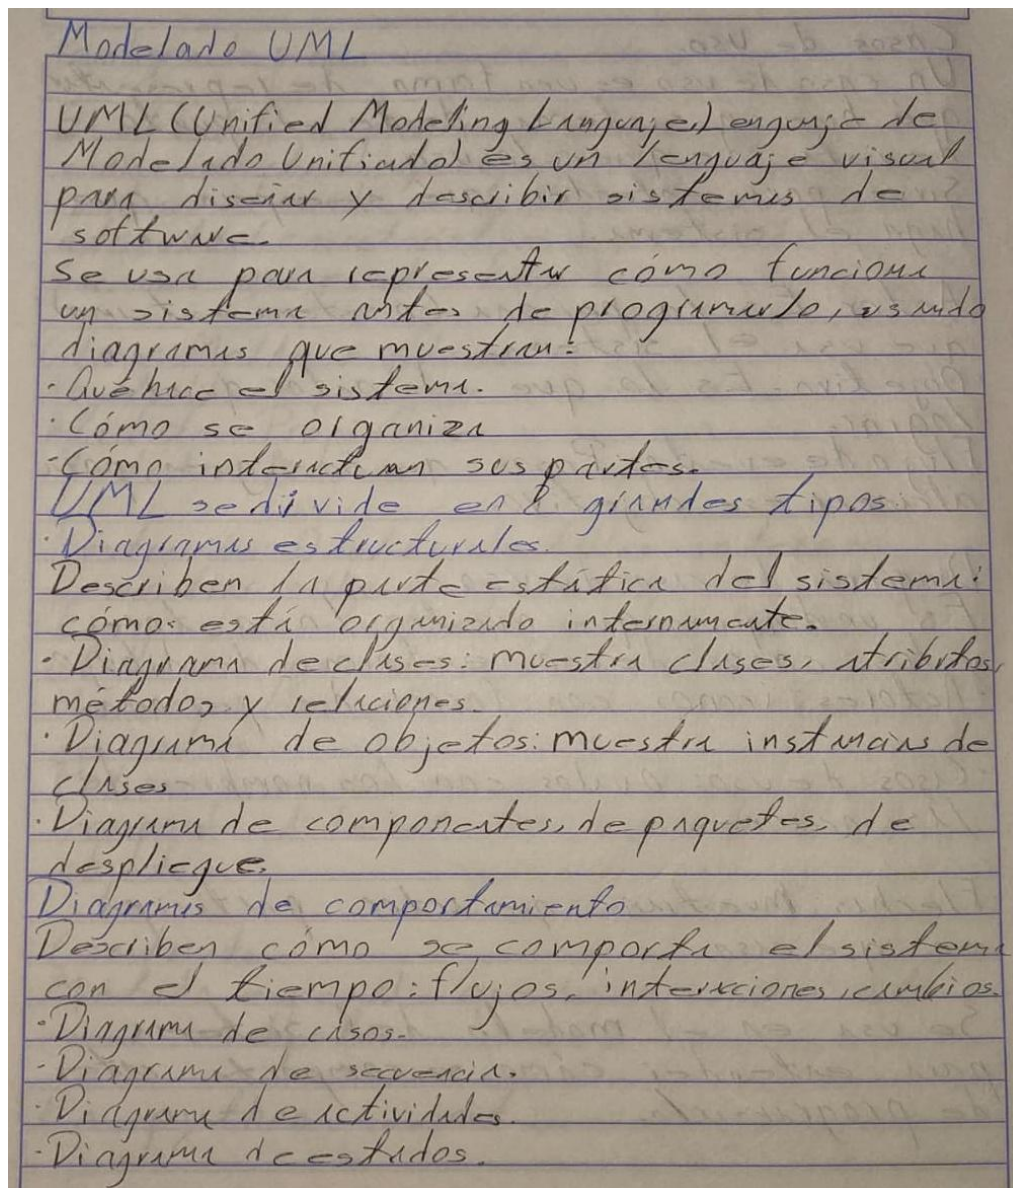 Modelado UML
UML (Unified Modeling Languaje) enguaje de
Modelado Unificado) es un lenguaje visual
para diseñar y describir sistemas de
software.
Se usa para representar cómo funciona
un sistema antes de programarlo, usando
diagramas que muestran:
· Qué hace el sistema.
· Cómo se organiza
· Cómo interactúan sus partes.
UML se divide en 2 grandes tipos:
· Diagramas estructurales.
Describen la parte estática del sistema:
cómo está organizado internamente.
· Diagrama de clases: muestra clases, atributos,
métodos y relaciones.
· Diagrama de objetos: muestra instancias de
clases
· Diagrama de componentes, de paquetes, de
despliegue.
Diagramas de comportamiento
Describen cómo se comporta el sistema
con el tiempo: flujos, interacciones, cambios.
· Diagrama de casos.
· Diagrama de secuencia.
· Diagrama de actividades.
· Diagrama de estados.